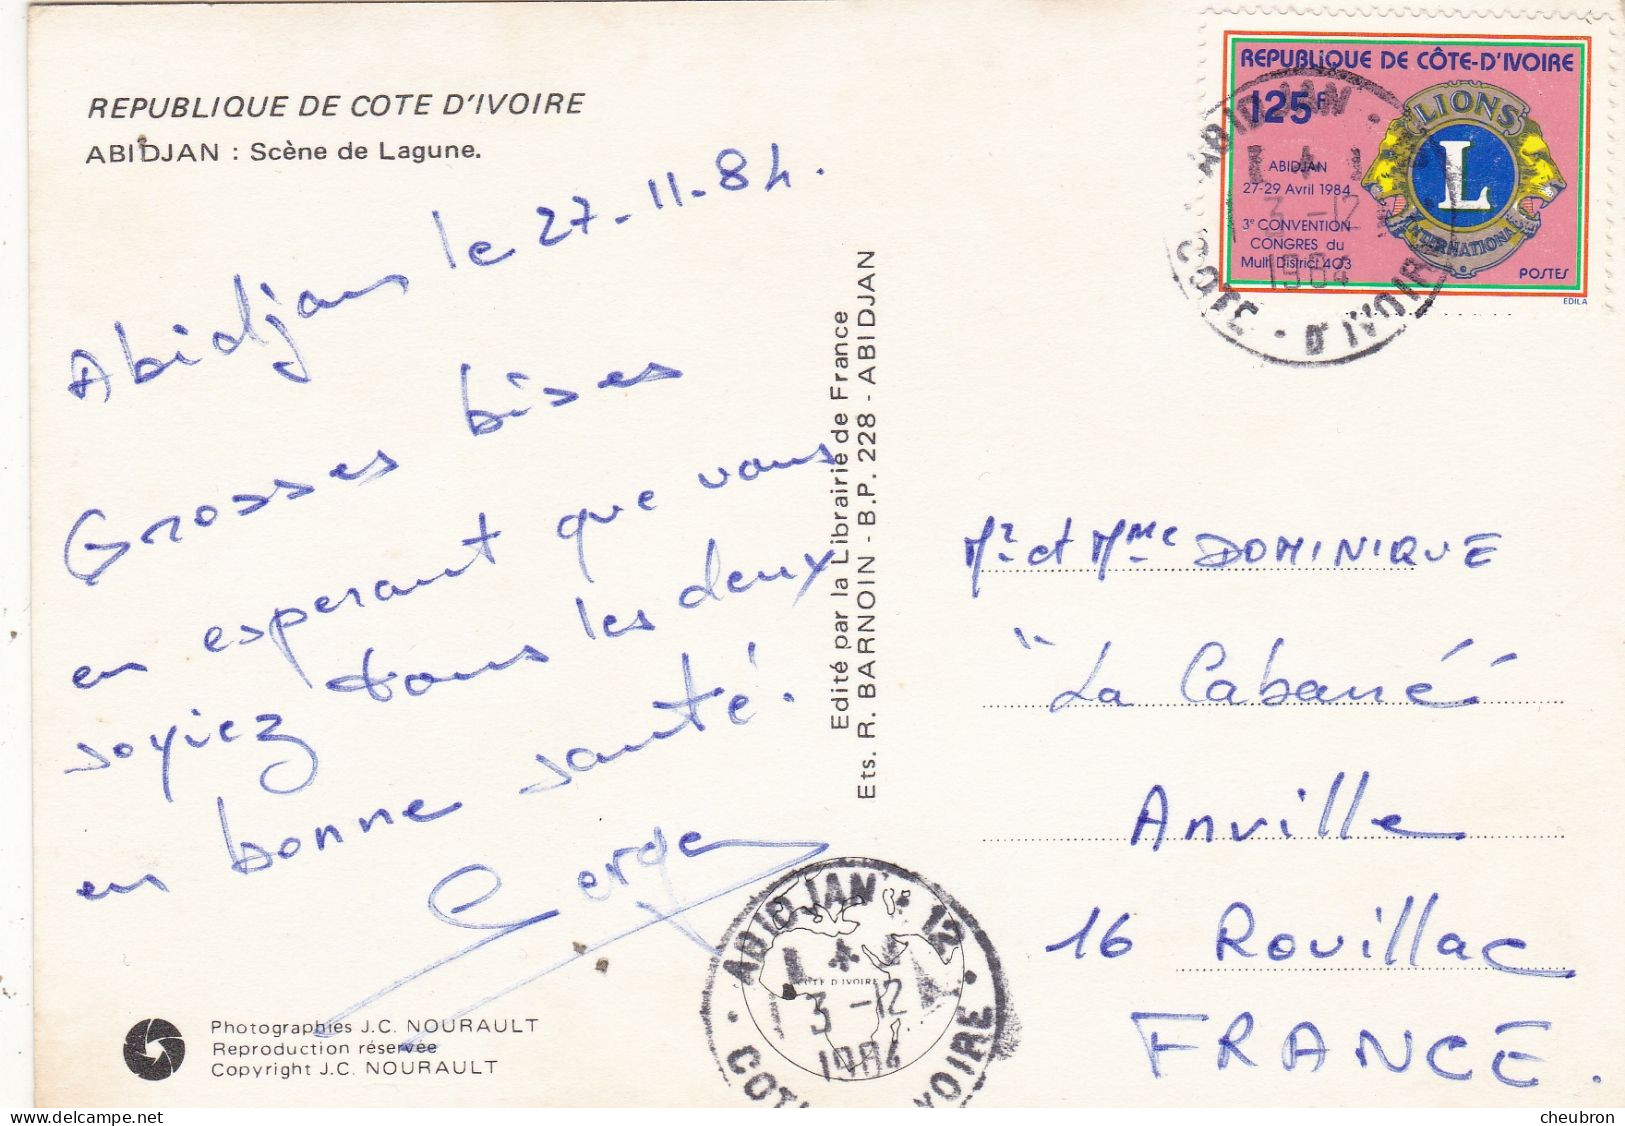 REPUBLIQUE DE COTE D'IVOIRE
ABIDJAN : Scène de Lagune.
Abidjan le 27-11-84.
Grosses bises
en esperant que vous
soyiez tous les deux
en bonne santé.
Serge
Photographies J.C. NOURAULT
Reproduction réservée
Copyright J.C. NOURAULT
Edité par la Librairie de France
Ets. R. BARNOIN - B.P. 228 - ABIDJAN
REPUBLIQUE DE CÔTE-D'IVOIRE
125F
LIONS
L
INTERNATIONAL
ABIDJAN
27-29 Avril 1984
3e CONVENTION
CONGRES du
Multi District 403
POSTES
EDILA
ABIDJAN
3 -12
1984
COTE - D'IVOIRE
Mr et Mme DOMINIQUE
"La Cabane"
Anville
16 Rouillac
FRANCE.
ABIDJAN 12
COTE D'IVOIRE
3 -12
1984
cheubron